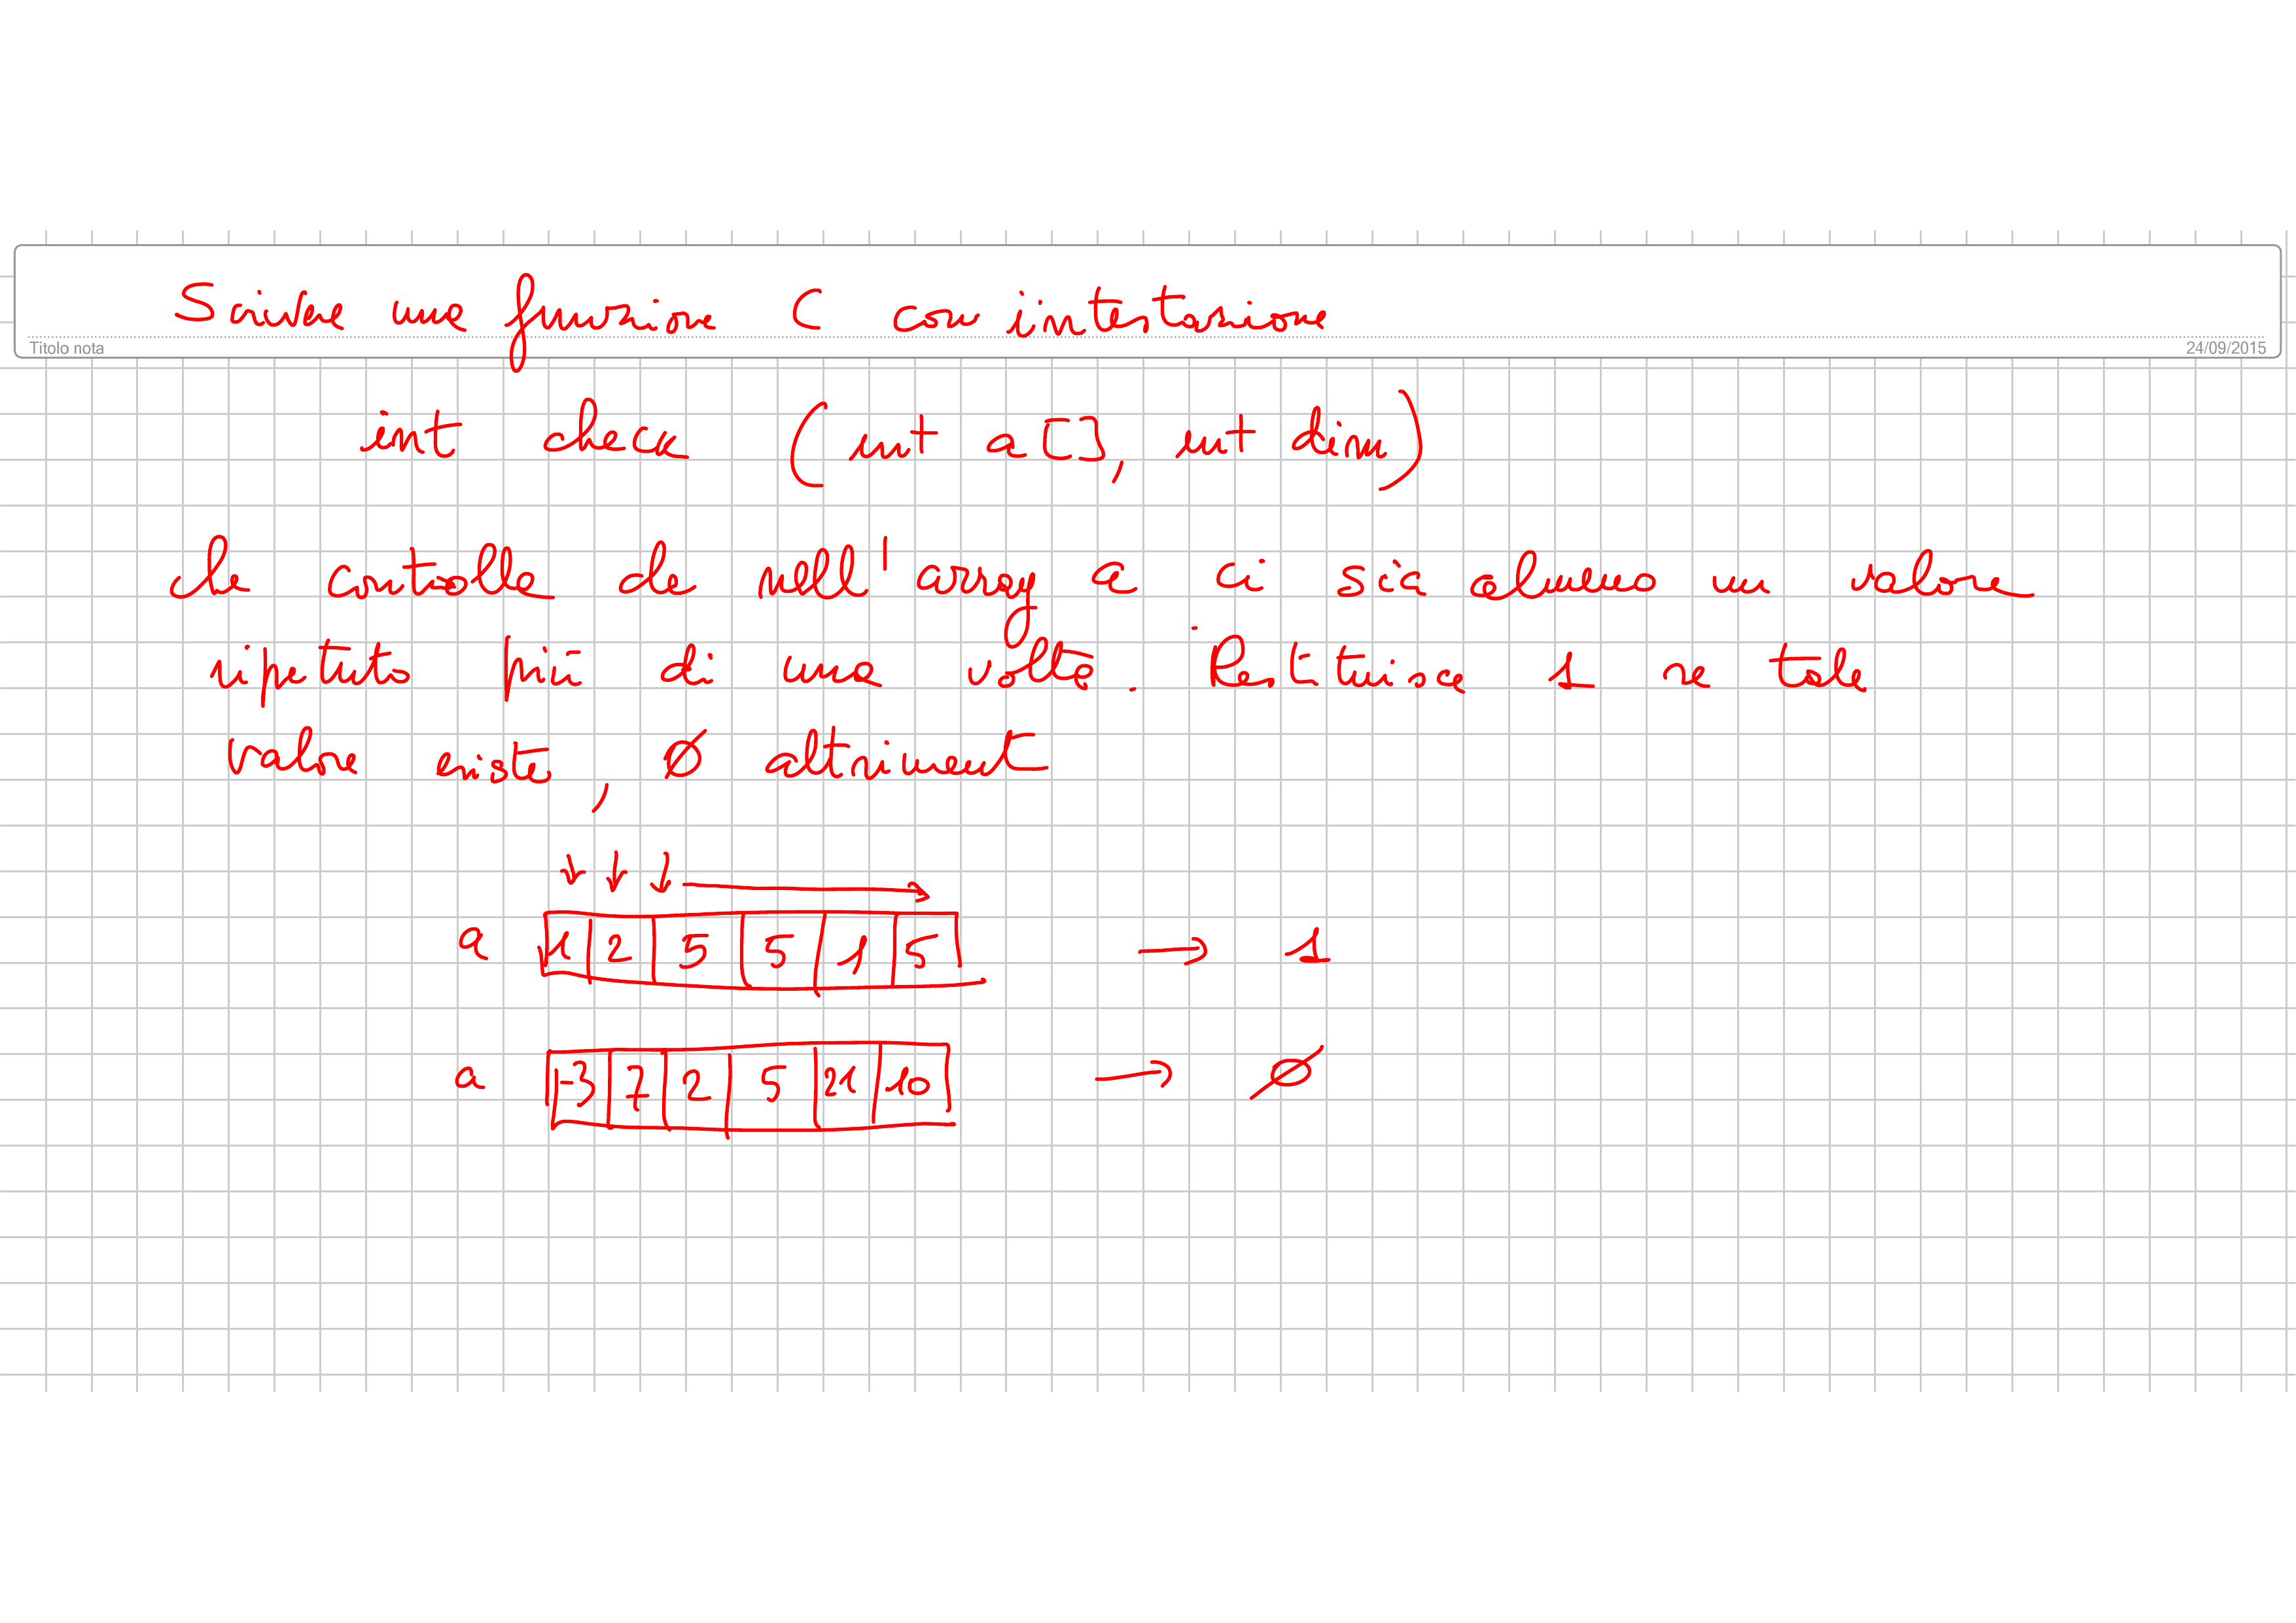 Scrivere una funzione C con intestazione
Titolo nota
24/09/2015
int check (int a[], int dim)
che controlla che nell'array a ci sia almeno un valore
ripetuto più di una volta. Restituisce 1 se tale
valore esiste, 0 altrimenti
a 1 2 5 5 1 5 → 1
a -3 7 2 5 21 10 → 0